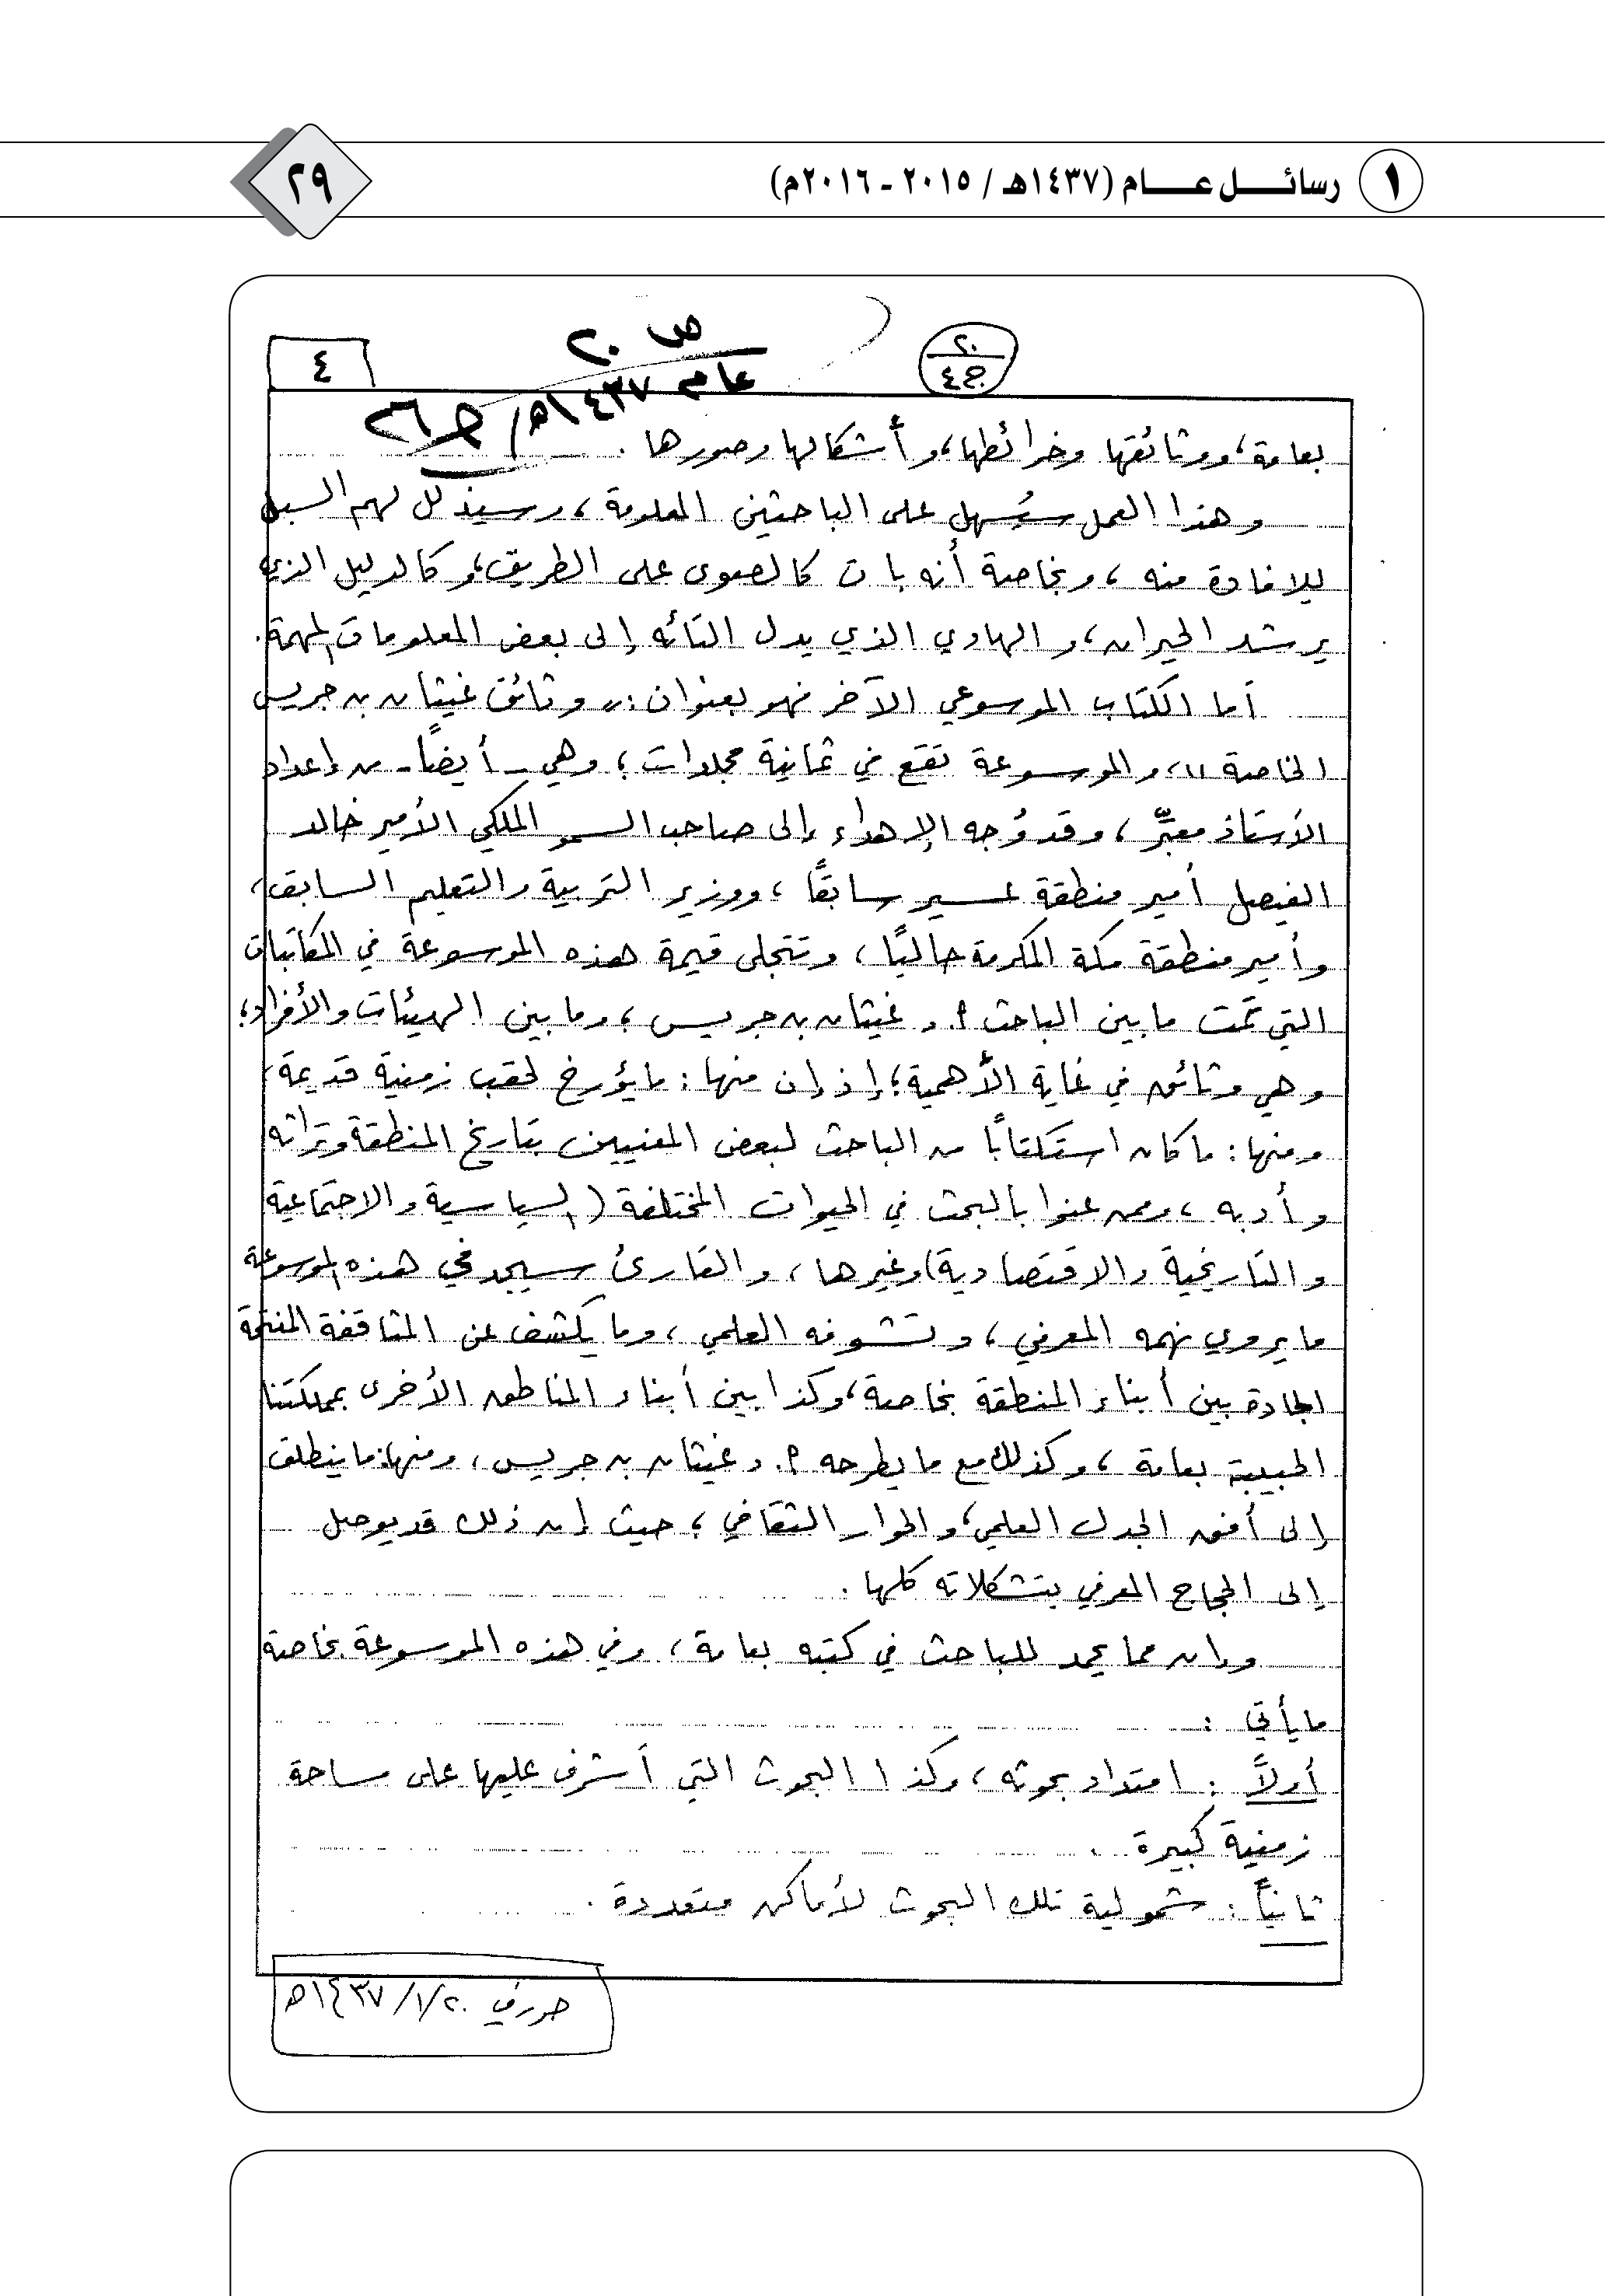 ١ رسائل عام (١٤٣٧هـ / ٢٠١٥ - ٢٠١٦م)
٢٩
٢٠
ج٤
ص ٢٠
عام ١٤٣٧هـ/ ج٢٦
٤
بعامة، ووثائقها وخرائطها، وأشكالها وصورها .
وهذا العمل سيُسهل على الباحثين المعلومة، وسيذلل لهم السبل
للإفادة منه، وبخاصة أنه بات كالصوى على الطريق، وكالدليل الذي
يرشد الحيران، والهادي الذي يدل التائه إلى بعض المعلومات المهمة.
أما الكتاب الموسوعي الآخر فهو بعنوان: " وثائق غيثان بن جريس
الخاصة "، والموسوعة تقع في ثمانية مجلدات؛ وهي - أيضاً - من إعداد
الأستاذ معبِّر، وقد وُجه الإهداء إلى صاحب السمو الملكي الأمير خالد
الفيصل أمير منطقة عسير سابقًا، ووزير التربية والتعليم السابق،
وأمير منطقة مكة المكرمة حاليًا، وتتجلى قيمة هذه الموسوعة في المكاتبات
التي تمت ما بين الباحث أ. د غيثان بن جريس، وما بين الهيئات والأفراد؛
وهي وثائق في غاية الأهمية؛ إذ إن منها: ما يؤرخ لحقب زمنية قديمة،
ومنها: ما كان استكتابًا من الباحث لبعض المعنيين بتاريخ المنطقة وتراثه
وأدبه، وممن عنوا بالبحث في الحيوات المختلفة (السياسية والاجتماعية
والتاريخية والاقتصادية) وغيرها، والقارئ سيجد في هذه الموسوعة
ما يروي نهمه المعرفي، وتشوفه العلمي، وما يكشف عن المثاقفة المنتجة
الجادة بين أبناء المنطقة بخاصة، وكذا بين أبناء المناطق الأخرى بمملكتنا
الحبيبة بعامة، وكذلك مع ما يطرحه أ. د غيثان بن جريس، ومنها: ما ينطلق
إلى أفق الجدل العلمي، والحوار الثقافي؛ حيث إن ذلك قد يوصل
إلى الحجاج المعرفي بتشكلاته كلها .
وإن مما يحمد للباحث في كتبه بعامة، وفي هذه الموسوعة بخاصة
ما يأتي :
أولاً : امتداد بحوثه، وكذا البحوث التي أشرف عليها على مساحة
زمنية كبيرة .
ثانياً : شمولية تلك البحوث لأماكن متعددة .
٢٠/١/١٤٣٧هـ